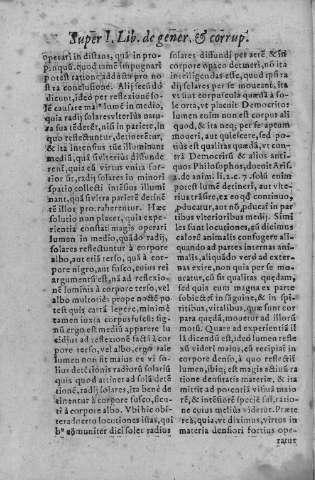 Super I. Lib. de gener. & corrup.
operari in distans, quā in pro-
pinquū. quod tamen impugnari
potest ratione addu pro no
stra conclusione. Alij secūdò
dicunt, ideo per reflexionē so-
lē causare maius lumē in medio,
quia radij solares vlterius natu-
ra sua tēderēt, nisi in pariete, in
quo reflectuntur, detinerētur,
& ita intensius tūc illuminant
mediū, quā si vlterius diffunde
rent, quia eū virtus vnita for-
tior sit, radij solares in minori
spatio collecti intēsius illumi
nant, quā si vltra parietē detinē
rē illos prohiberentur. Hæc
solutio non placet, quia expe-
rientia constat magis operari
lumen in medio, quādo radij,
solares reflectuntur à corpore
albo, aut etiā terso, quā à cor-
pore nigro, aut fusco, cuius rei
argumentū est, nā ad reflexio-
nē luminis à corpore terso, vel
albo multoties prope noctē po
test quis cartā legere, minimè
tamen iuxta corpus fuscū: sig-
nū ergo est mediū apparere lu
cidius ad reflexionē factā à cor
pore terso, vel albo, ergo tale
lumen non fit maius ex vi so-
lius detētionis radiorū solariū
quia quod attinet ad solā detē
tionē, radij solares, ita bene de
tinentur à corpore fusco, sicu
ti à corpore albo. Vbi hic obi-
ter aduerto locutiones istas, qui
bus cōmuniter dici solet radios
solares diffundi per aerē, & in
corpore opaco detineri, nō ita
intelligendas esse, quod ipsi ra
dij solares per se moueant, ita
vt sint corpuscula quædā à so-
le orta, vt placuit Democrito:
lumen enim non est corpus ali
quod, & ita neq; per se aptum
moueri, aut quiescere, sed po-
tius est qualitas quædā, vt con
trà Democritū & alios anti-
quos Philosophos, docent Aris.
2. de anim. li. 2. c. 7. solū enim
potest lumē detineri, aut vlte
rius trāsire, ex eo qd continuo,
producat, aut nō, producat in par
tibus vlterioribus medij. Simi
les sunt locutiones, cū dicimus
calorē animalis confugere ali-
quando ad partes internas ani-
malis, aliquādo verò ad exter-
nas exire, non quia per se mo-
ueatur, cū sit qualitas quædam,
sed quia cum magna ex parte
subiectet in sāguine, & in spi-
ritibus, vitalibus, quæ sunt cor
para quædā, mouetur ad illorū
motū. Quare ad experientiā il
la dicendū est, ideo lumen ma
gis videri maius, eū recipiat in
corpore denso, à quo reflectit
lumen, ibiq; est magis actiuū ra
tione densitatis materiæ, & ita
mittit ad potentiā visiuā maio
rē, & intēsiorē speciē sui, ratio
ne cuius melius videtur. Præte
reà, quia, vt diximus, virtus in
materia densiori fortius ope-
ratur